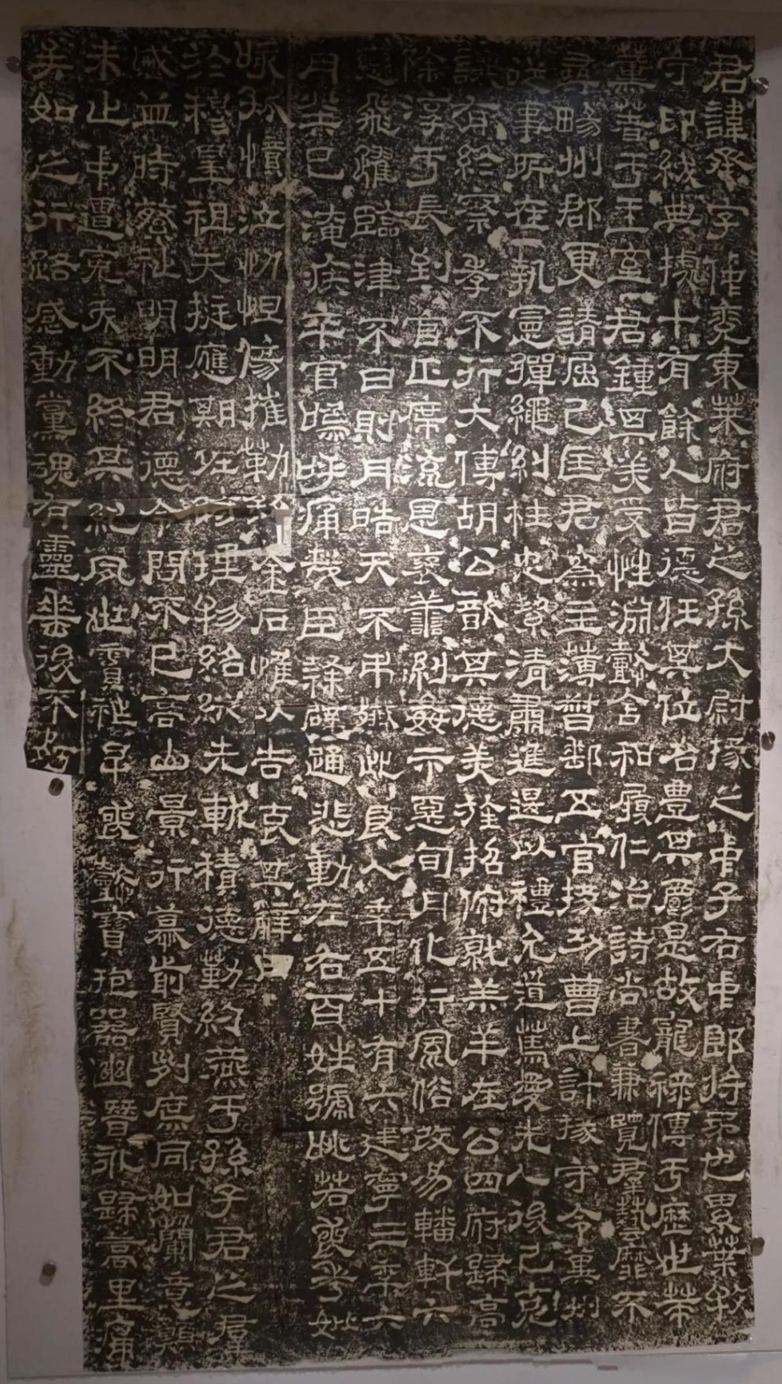 君諱承字仲兗東萊府君之孫大尉掾之中子右中郎將弟也累葉牧
守印紱典據十有餘人皆德任其位名豊其爵是故寵祿傳于歷世策
薰著于王室君鍾其美受性淵懿含和履仁治詩尚書兼覽群藝靡不
尋暢州郡更請屈己匡君為主薄督郵五官掾功曹上計掾守令冀州
從事所在執憲彈繩糾枉忠絜清肅進退以禮允道篤愛先人後己克
讓有終察孝不行大傅胡公歆其德美旌招俯就羔羊在公四府歸高
除淳于長到官正席流恩褒善糾姦示惡旬月化行風俗改易轓軒六
轡飛躍臨津不日則月皓天不弔殲此良人年五十有六建寧三年六
月癸巳淹疾卒官嗚呼痛哉臣隸辟踊悲動左右百姓號咷若喪考妣
咳孤憤泣忉怛傷摧勒銘金石惟以告哀其辭曰
於穆皇祖天挺應期佐時理物紹縱先軌積德勤約燕于孫子君之群
慼並時繁祉明明君德令問不已高山景行慕前賢列庶同如蘭意願
未止中遭冤夭不終其紀夙世霣祚早喪懿寶抱器幽潛永歸蒿里痛
矣如之行路感動黨魂有靈垂後不朽